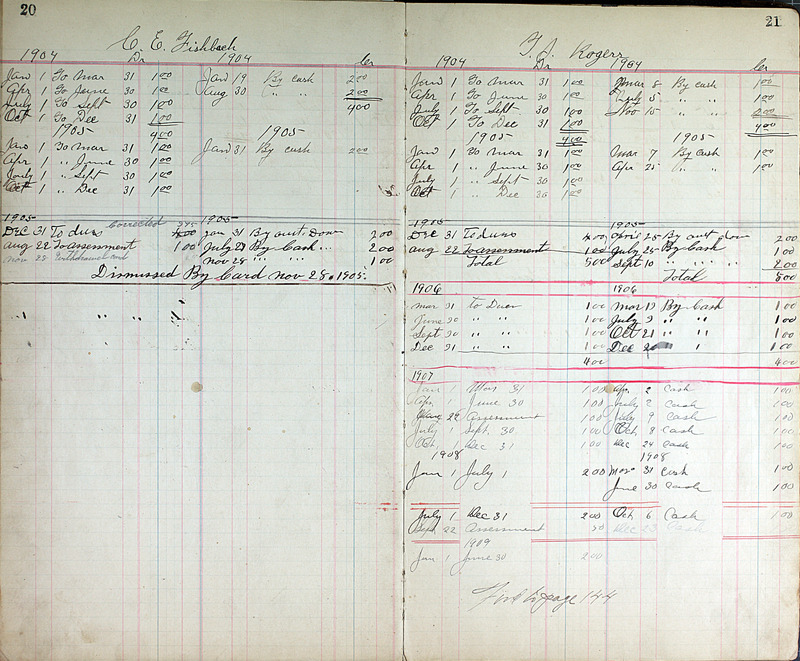 20
C. E. Fishbach
1904 Dr 1904 Cr
Jan 1 To Mar 31 1.00 Jan 19 By cash 2.00
Apr 1 To June 30 1.00 Aug 30 " " 2.00
July 1 To Sept 30 1.00 4.00
Oct 1 To Dec 31 1.00
1905 4.00 1905
Jan 1 To Mar 31 1.00 Jan 31 By cash 2.00
Apr 1 " June 30 1.00
July 1 " Sept 30 1.00
Oct 1 " Dec 31 1.00
1905 Corrected 1905
Dec 31 To dues 4.00 Jan 31 By amt Down 2.00
Aug 22 To assessment 1.00 July 29 By Cash 2.00
Nov 28 withdrawal card Nov 28 " " 1.00
Dismissed By Card Nov 28. 1905.
21
T. A. Rogers
1904 Dr 1904 Cr
Jan 1 To Mar 31 1.00 Mar 8 By cash 1.00
Apr 1 To June 30 1.00 July 5 " " 1.00
July 1 To Sept 30 1.00 Nov 15 " " 2.00
Oct 1 To Dec 31 1.00 4.00
1905 4.00 1905
Jan 1 To Mar 31 1.00 Mar 7 By Cash 1.00
Apr 1 " June 30 1.00 Apr 25 " " 1.00
July 1 " Sept 30 1.00
Oct 1 " Dec 30 1.00
1905 1905
Dec 31 To dues 4.00 Apr 25 By amt down 2.00
Aug 22 To assessment 1.00 July 25 By Cash 1.00
Total 5.00 Sept 10 " " " " 2.00
Total 5.00
1906 1906
Mar 31 to Dues 1.00 Mar 13 By Cash 1.00
June 30 " " 1.00 July 3 " " 1.00
Sept 30 " " 1.00 Oct 21 " " 1.00
Dec 31 " " 1.00 Dec 20 " 1.00
4.00 4.00
1907
Jan 1 Mar 31 1.00 Apr 2 Cash 1.00
Apr 1 June 30 1.00 July 2 Cash 1.00
Aug 22 Assessment 1.00 July 9 Cash 1.00
July 1 Sept 30 1.00 Oct 8 Cash 1.00
Oct 1 Dec 31 1.00 Dec 24 Cash 1.00
1908 1908
Jan 1 July 1 2.00 Mar 31 Cash 1.00
June 30 Cash 1.00
July 1 Dec 31 2.00 Oct 6 Cash 1.00
Sept 22 Assessment 50 Dec 23 Cash
1909
Jan 1 June 30 2.00
Fwd to page 144